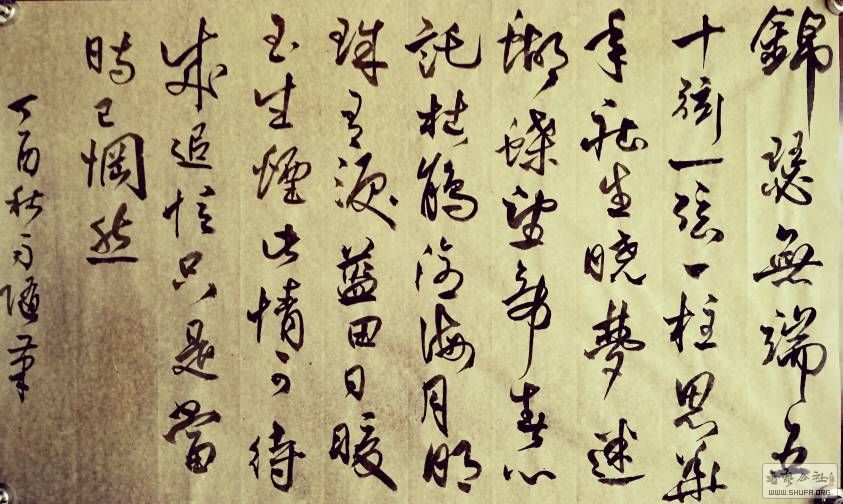 錦瑟無端五
十弦一弦一柱思華
年莊生曉夢迷
蝴蝶望帝春心
託杜鵑滄海月明
珠有淚藍田日暖
玉生煙此情可待
成追憶只是當
時已惘然
丁酉秋月隨筆
WWW.SHUFA.ORG